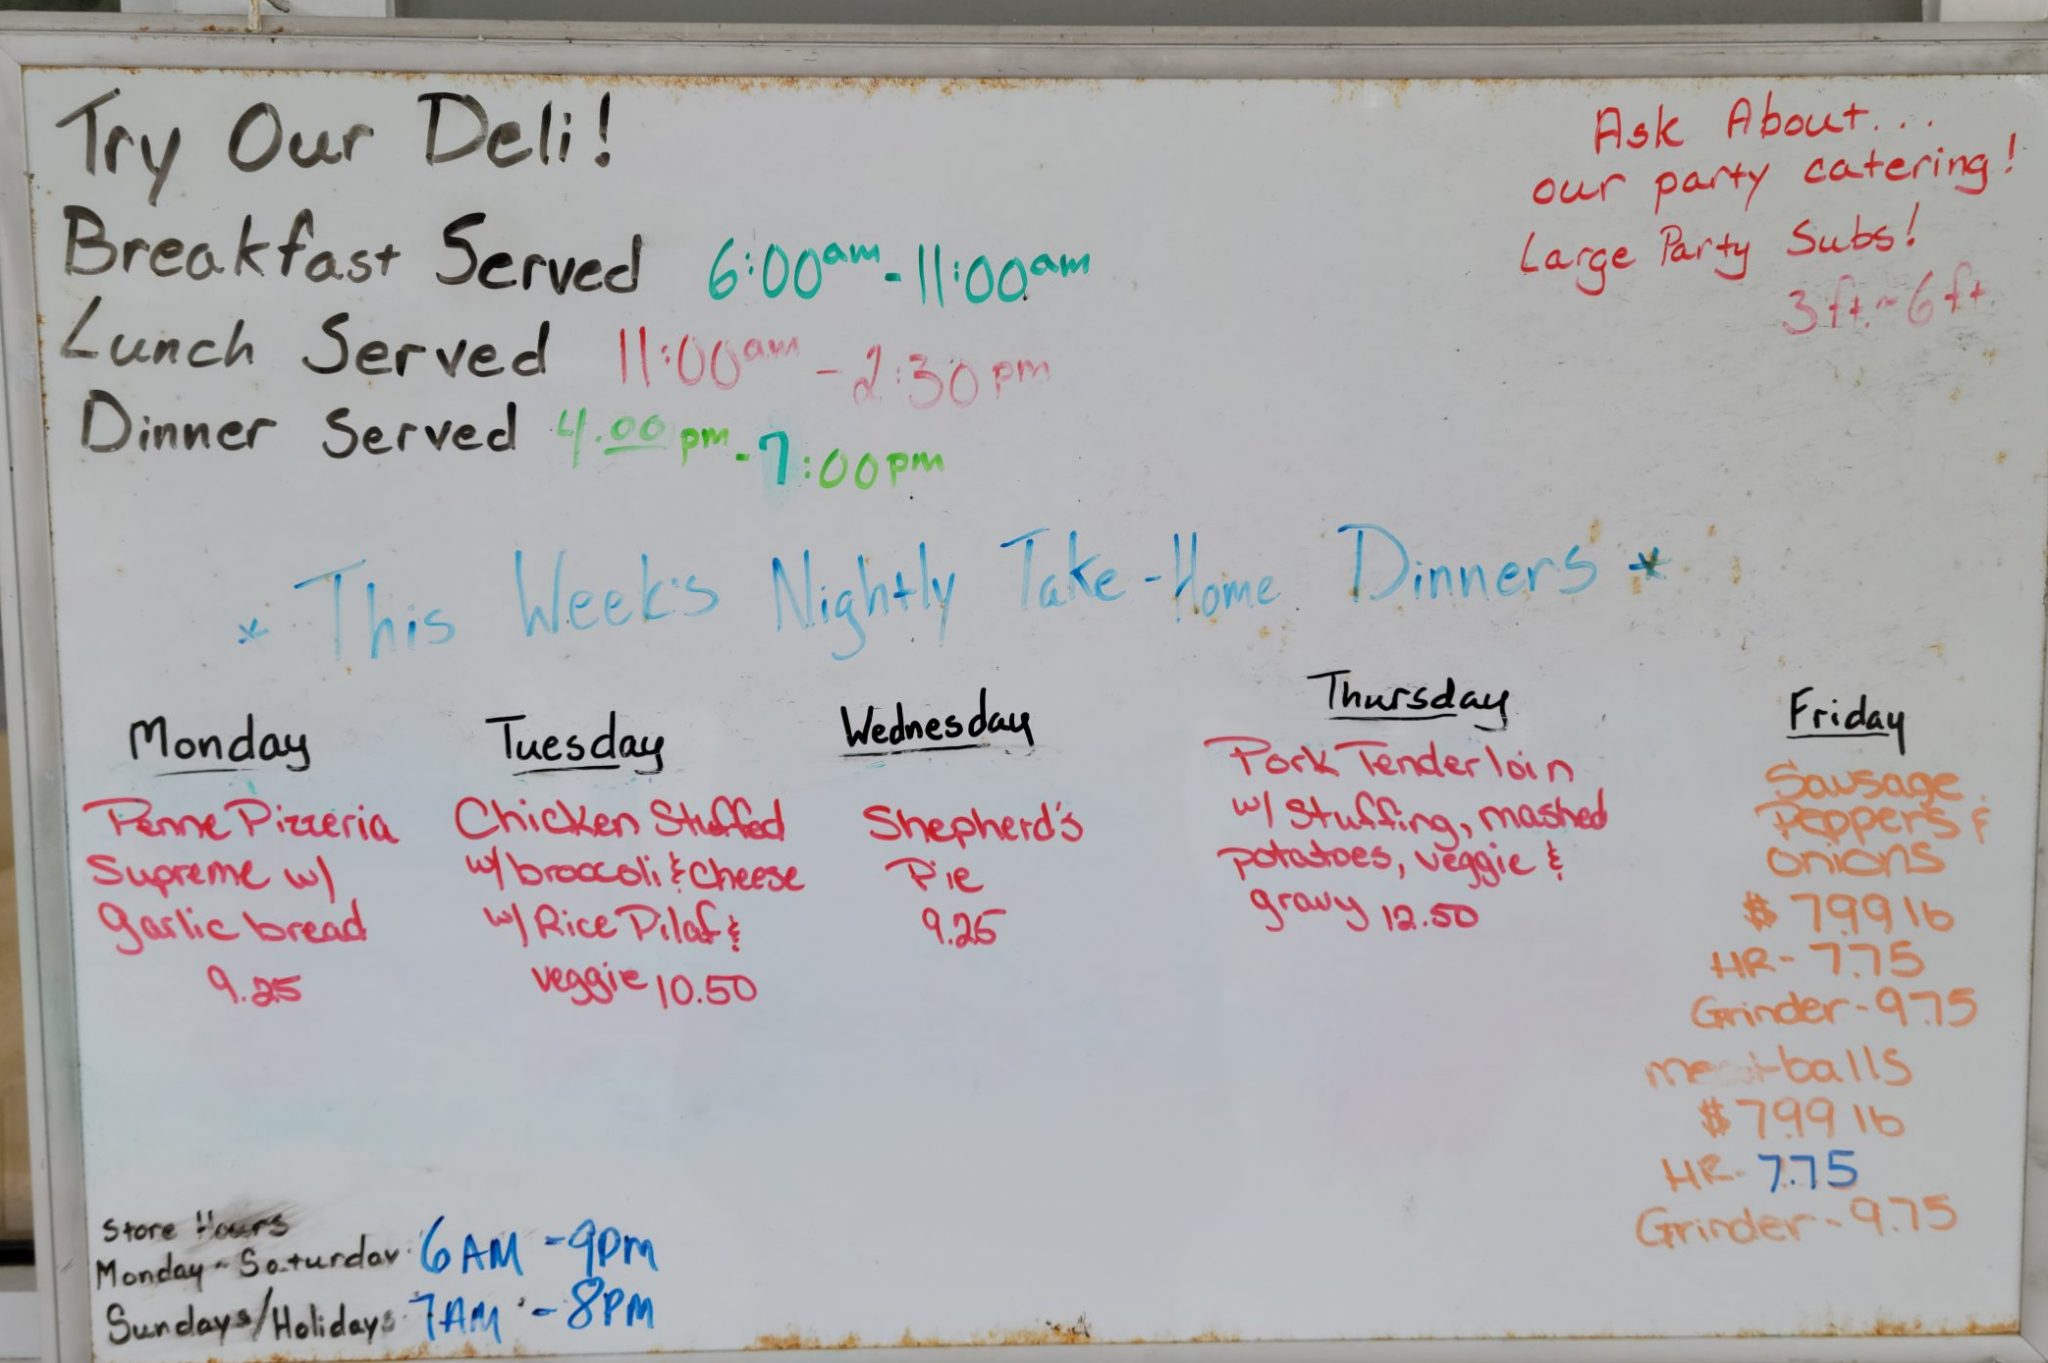 Try Our Deli!
Breakfast Served 6:00am-11:00am
Lunch Served 11:00am - 2:30pm
Dinner Served 4.00pm-7:00pm
Ask About...
our party catering!
Large Party Subs!
3ft.-6ft
* This Week's Nightly Take-Home Dinners *
Monday
Penne Pizzeria
Supreme w/
garlic bread
9.25
Tuesday
Chicken Stuffed
w/ broccoli & cheese
w/ Rice Pilaf &
veggie 10.50
Wednesday
Shepherd's
Pie
9.25
Thursday
Pork Tenderloin
w/ stuffing, mashed
potatoes, veggie &
gravy 12.50
Friday
Sausage
Peppers &
onions
$ 7.99 lb
HR- 7.75
Grinder- 9.75
meatballs
$ 7.99 lb
HR- 7.75
Grinder- 9.75
Store Hours
Monday-Saturday 6AM -9pm
Sundays/Holidays 7AM - 8PM